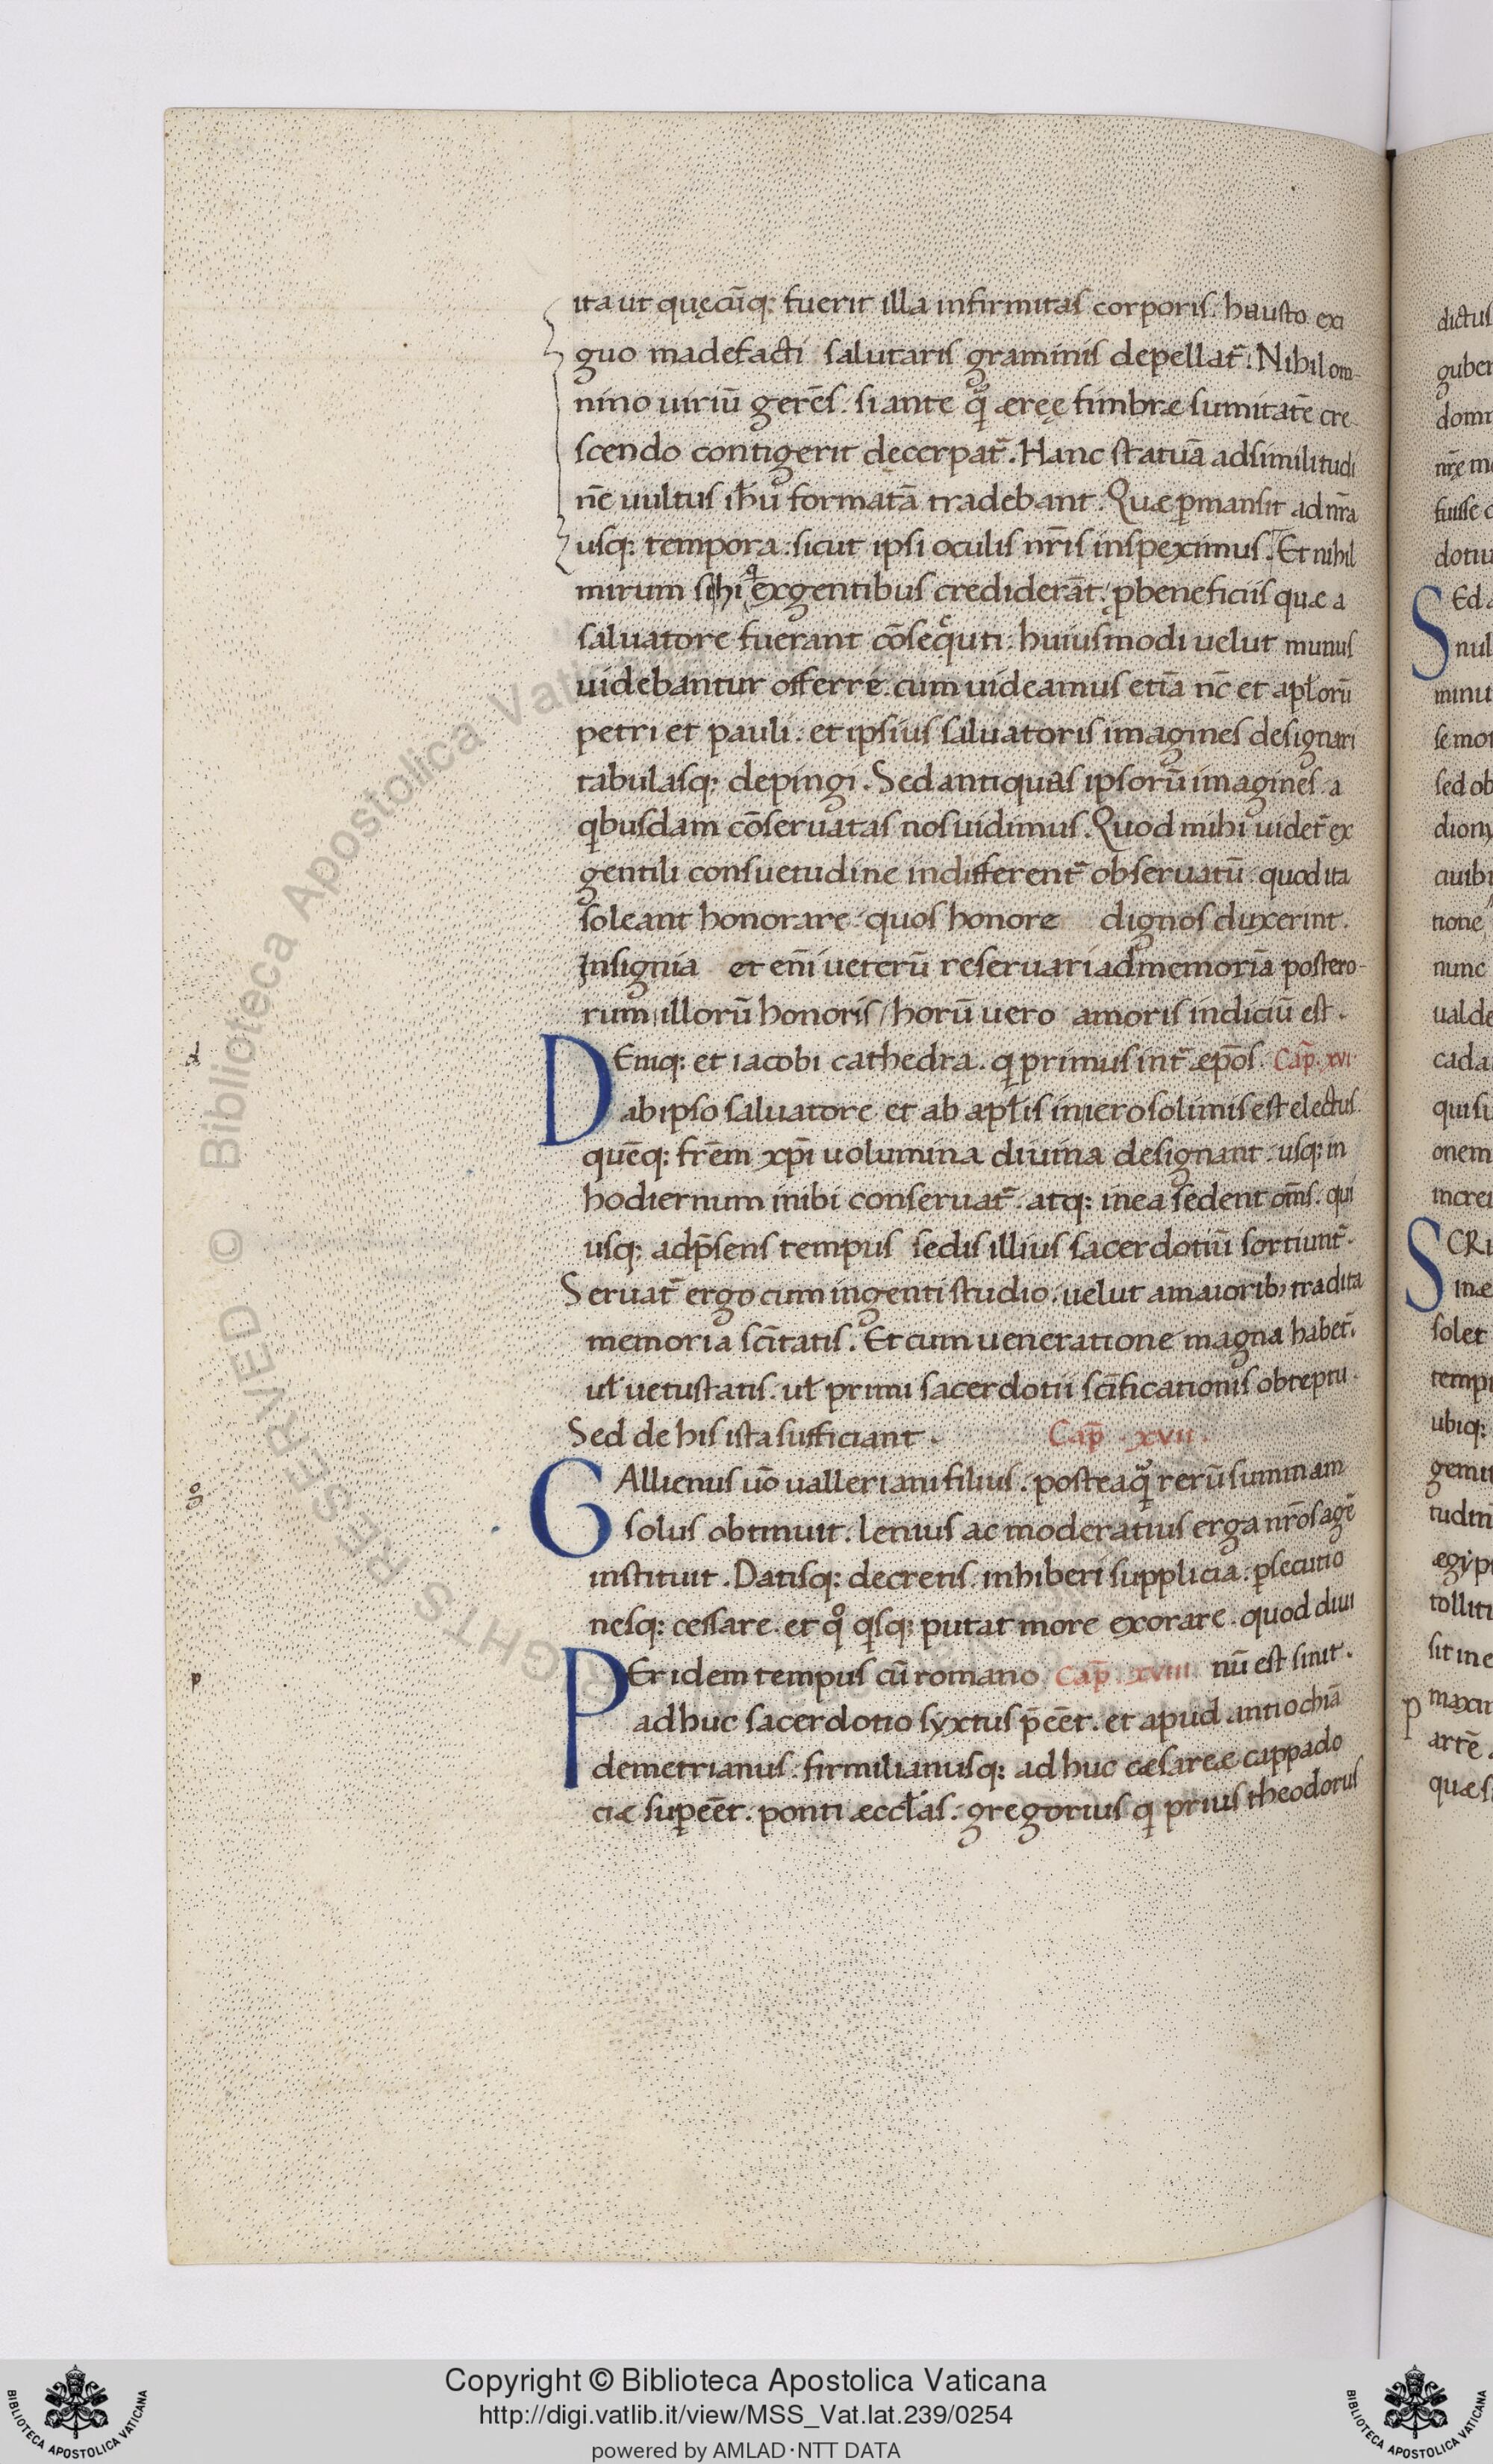 ita ut quęcūq; fuerit illa infirmitas corporis. hausto exi
guo madefacti salutaris graminis depellat᷑. Nihil om-
nino uiriū gerēs. si ante qͣ̄ æreę fimbræ sumitatē cre
scendo contigerit decerpat᷑. Hanc statuā ad similitudi
nē uultus ihū formatā tradebant. Quæ ꝑmansit ad nr̄a
usq; tempora. sicut ipsi oculis nr̄is inspeximus. Et nihil
mirum si hi q exgentibus crediderāt. ꝓ beneficiis quæ a
saluatore fuerant cōsequuti. huiusmodi uelut munus
uidebantur offerre. cum uideamus etiā nc̄ et apl̄orū
petri et pauli. et ipsius saluatoris imagines designari
tabulasq; depingi. Sed antiquas ipsorū imagines a
qibusdam cōseruatas nos uidimus. Quod mihi uidet᷑ ex
gentili consuetudine indifferent᷑ obseruatū. quod ita
soleant honorare quos honore dignos duxerint.
Insignia et eni̅ ueterū reseruari ad memoriā postero-
rum illorū honoris / horū uero amoris indiciū est.
DEniq; et iacobi cathedra. qi primus int᷑ æpōs. Cap̄. xvi
ab ipso saluatore et ab apl̄is in ierosolimis est electus.
quēq; frēm xp̄i uolumina diuina designant. usq; in
hodiernum inibi conseruat᷑. atq; in ea sedent om̄s. qui
usq; ad p̄sens tempus sedis illius sacerdotiū sortiunt᷑.
Seruat᷑ ergo cum ingenti studio. uelut a maiorib; tradita
memoria sc̄itatis. Et cum ueneratione magna habet᷑.
ul̄ uetustatis. ul̄ primi sacerdotii sc̄ificationis obteptu.
Sed de his ista sufficiant. Cap̄. xvii.
GAllienus uō ualleriani filius. postea qͣ̄ rerū summam
solus obtinuit. lenius ac moderatius erga nr̄os agē
instituit. Datisq; decretis. inhiberi supplicia. ꝑsecutio
nesq; cessare. et qͦ qisq; putat more exorare. quod diui
PEr idem tempus cū romano Cap̄. xviii nū est sinit.
adhuc sacerdotio syxtus p̄eēt. et apud antiochiā
demetrianus. firmilianusq; adhuc cæsareæ cappado
ciæ suꝑeēt. ponti æccl̄as. gregorius qi prius theodorus
d
go
p
dictus
guber
dom
nr̄ę m
fuisse c
dotiu
SEd a
nul
minu
se mor
sed ob
diony
ciuib
tione
nunc
ualde
cada
qui su
onem
incre
SCRi
inæ
solet
temp
ubiq;
gemit
tudin
ægyp
tollit
sit in e
p
maxim
artē
quæ s
© Biblioteca Apostolica Vaticana
RIGHTS RESERVED
BIBLIOTECA APOSTOLICA VATICANA
Copyright © Biblioteca Apostolica Vaticana
http://digi.vatlib.it/view/MSS_Vat.lat.239/0254
powered by AMLAD·NTT DATA
BIBLIOTECA APOSTOLICA VATICANA